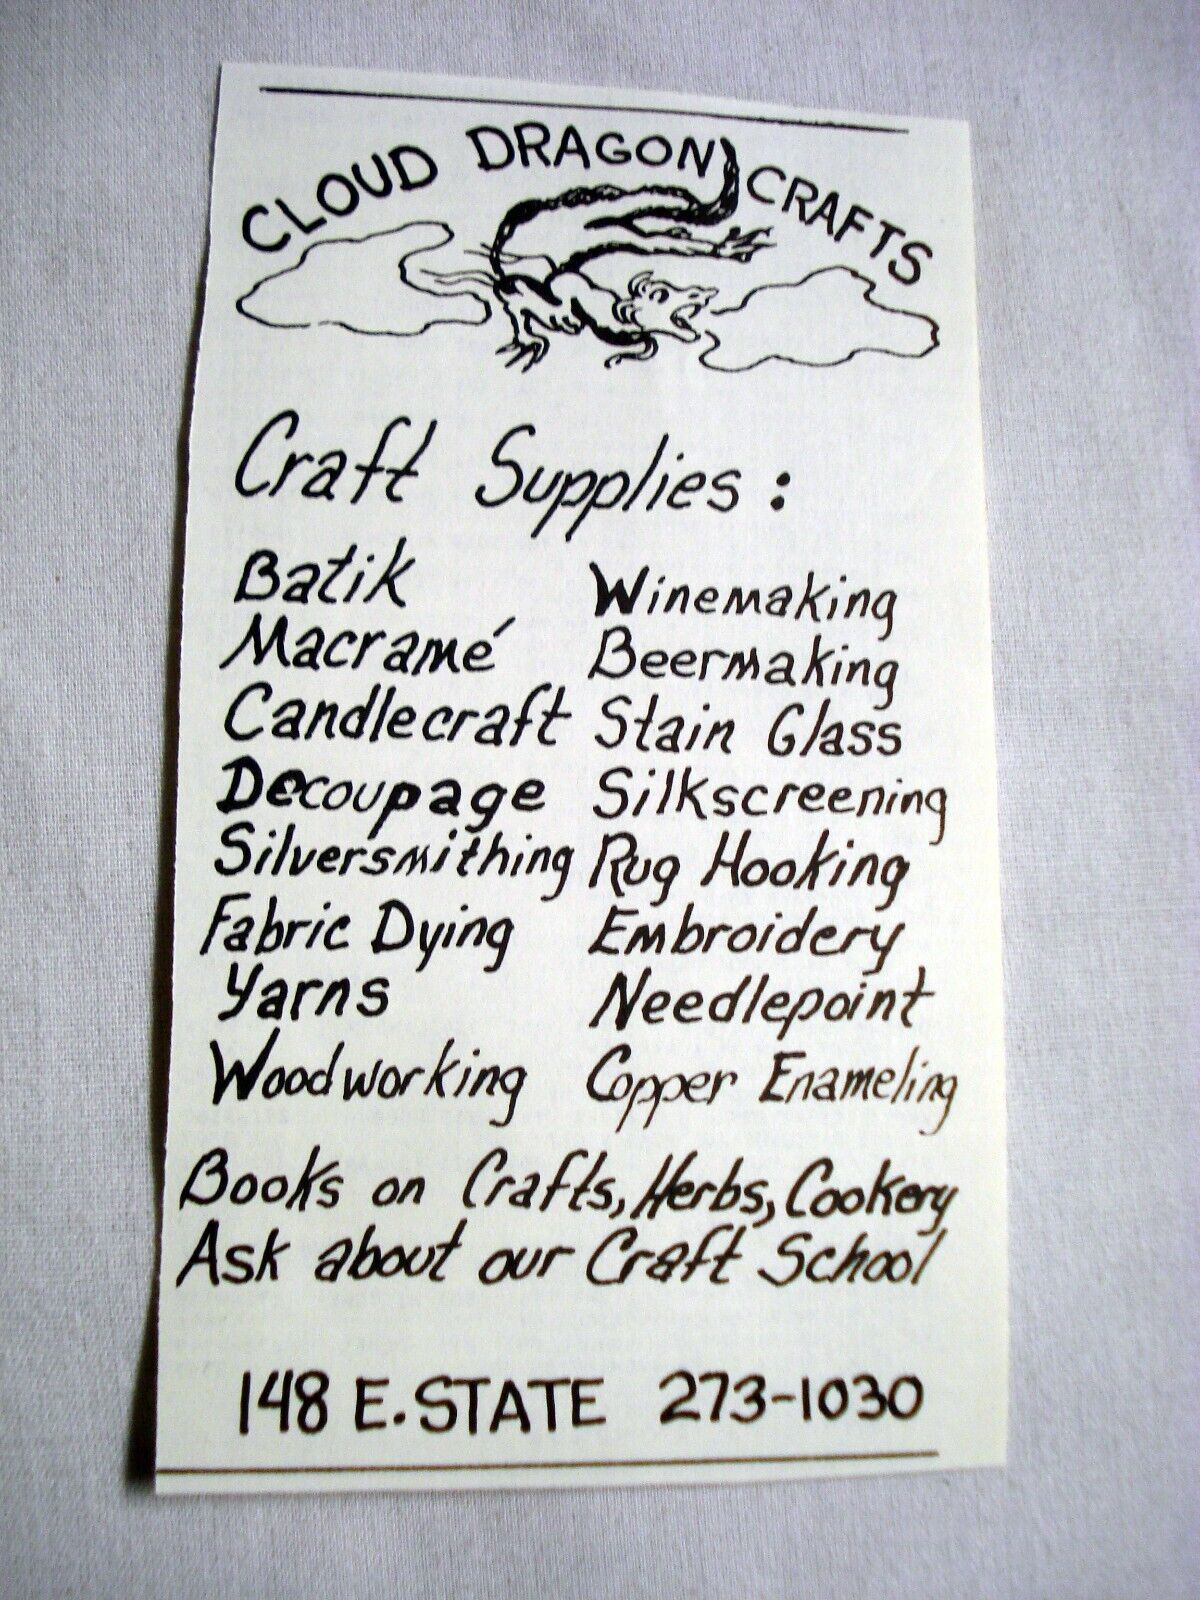 CLOUD DRAGON CRAFTS
Craft Supplies:
Batik
Macramé
Candlecraft
Decoupage
Silversmithing
Fabric Dying
Yarns
Woodworking
Winemaking
Beermaking
Stain Glass
Silkscreening
Rug Hooking
Embroidery
Needlepoint
Copper Enameling
Books on Crafts, Herbs, Cookery
Ask about our Craft School
148 E. STATE 273-1030